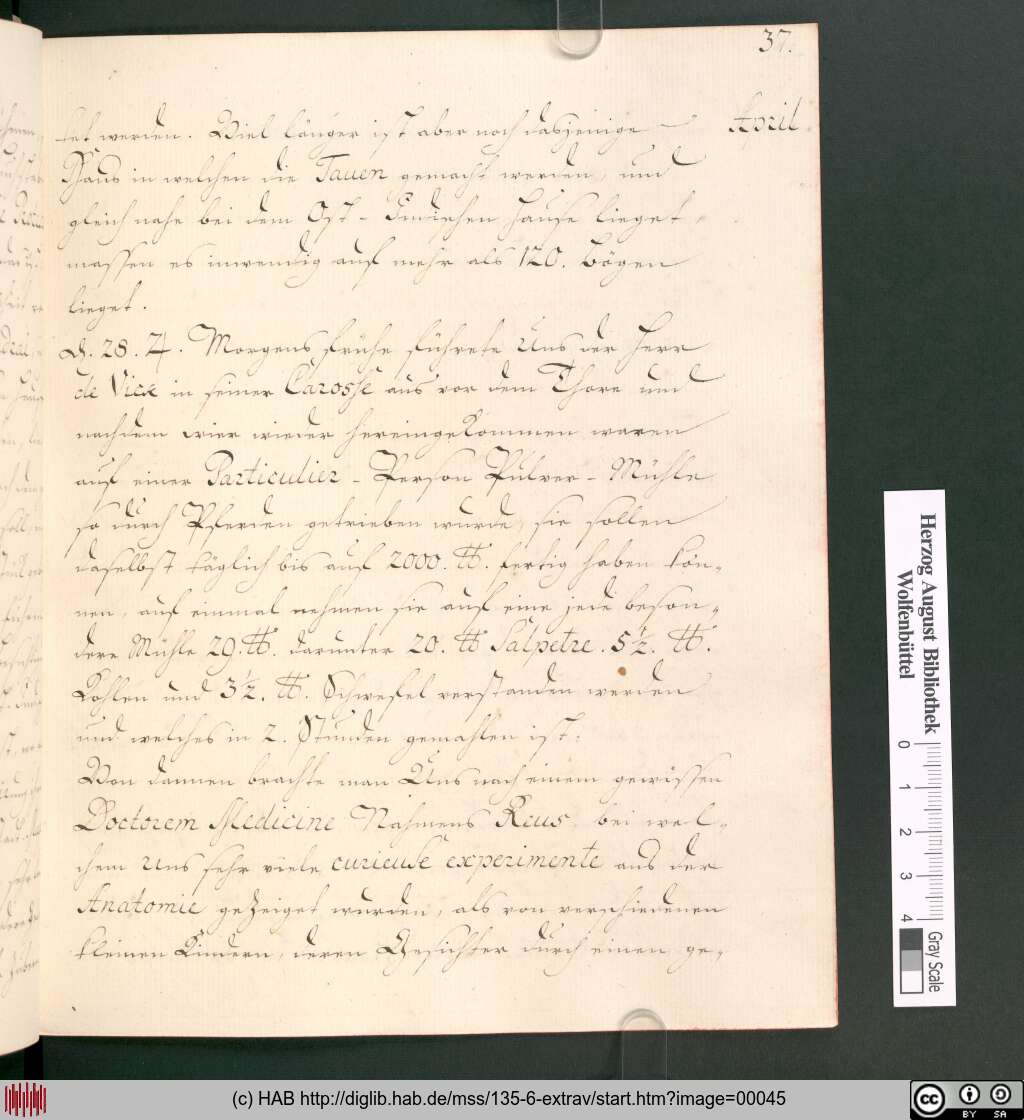 37.
April
tet werden. Viel länger ist aber noch dasjenige
Haus in welchen die Tauen gemacht werden, und
gleich nahe bei dem Ost-Indischen Hause lieget,
massen es inwendig auf mehr als 120. Bögen
lieget.
D. 28. ♃. Morgens frühe führete Uns der Herr
de Vick in seiner Carosse aus vor dem Thore und
nachdem wier wieder hereingekommen waren
auf einer Particulier-Person Pulver-Mühle
so durch Pferden getrieben wurde, sie sollen
daselbst täglich bis auf 2000. ℔. fertig haben kön-
nen, auf einmal nehmen sie auf eine jede beson-
dere Mühle 29. ℔. darunter 20. ℔ Salpetre. 5½. ℔.
Kohlen und 3½. ℔. Schwefel verstanden werden
und welches in 2. Stunden gemahlen ist.
Von dannen brachte man Uns nach einem gewissen
Doctorem Medicine Nahmens Reus, bei wel-
chem Uns sehr viele curieuse experimente aus der
Anatomie gezeiget wurden, als von verschiedenen
kleinen Kindern, deren Gesichter durch einen ge-
Herzog August Bibliothek
Wolfenbüttel
0 1 2 3 4
Gray Scale
(c) HAB http://diglib.hab.de/mss/135-6-extrav/start.htm?image=00045
cc BY SA